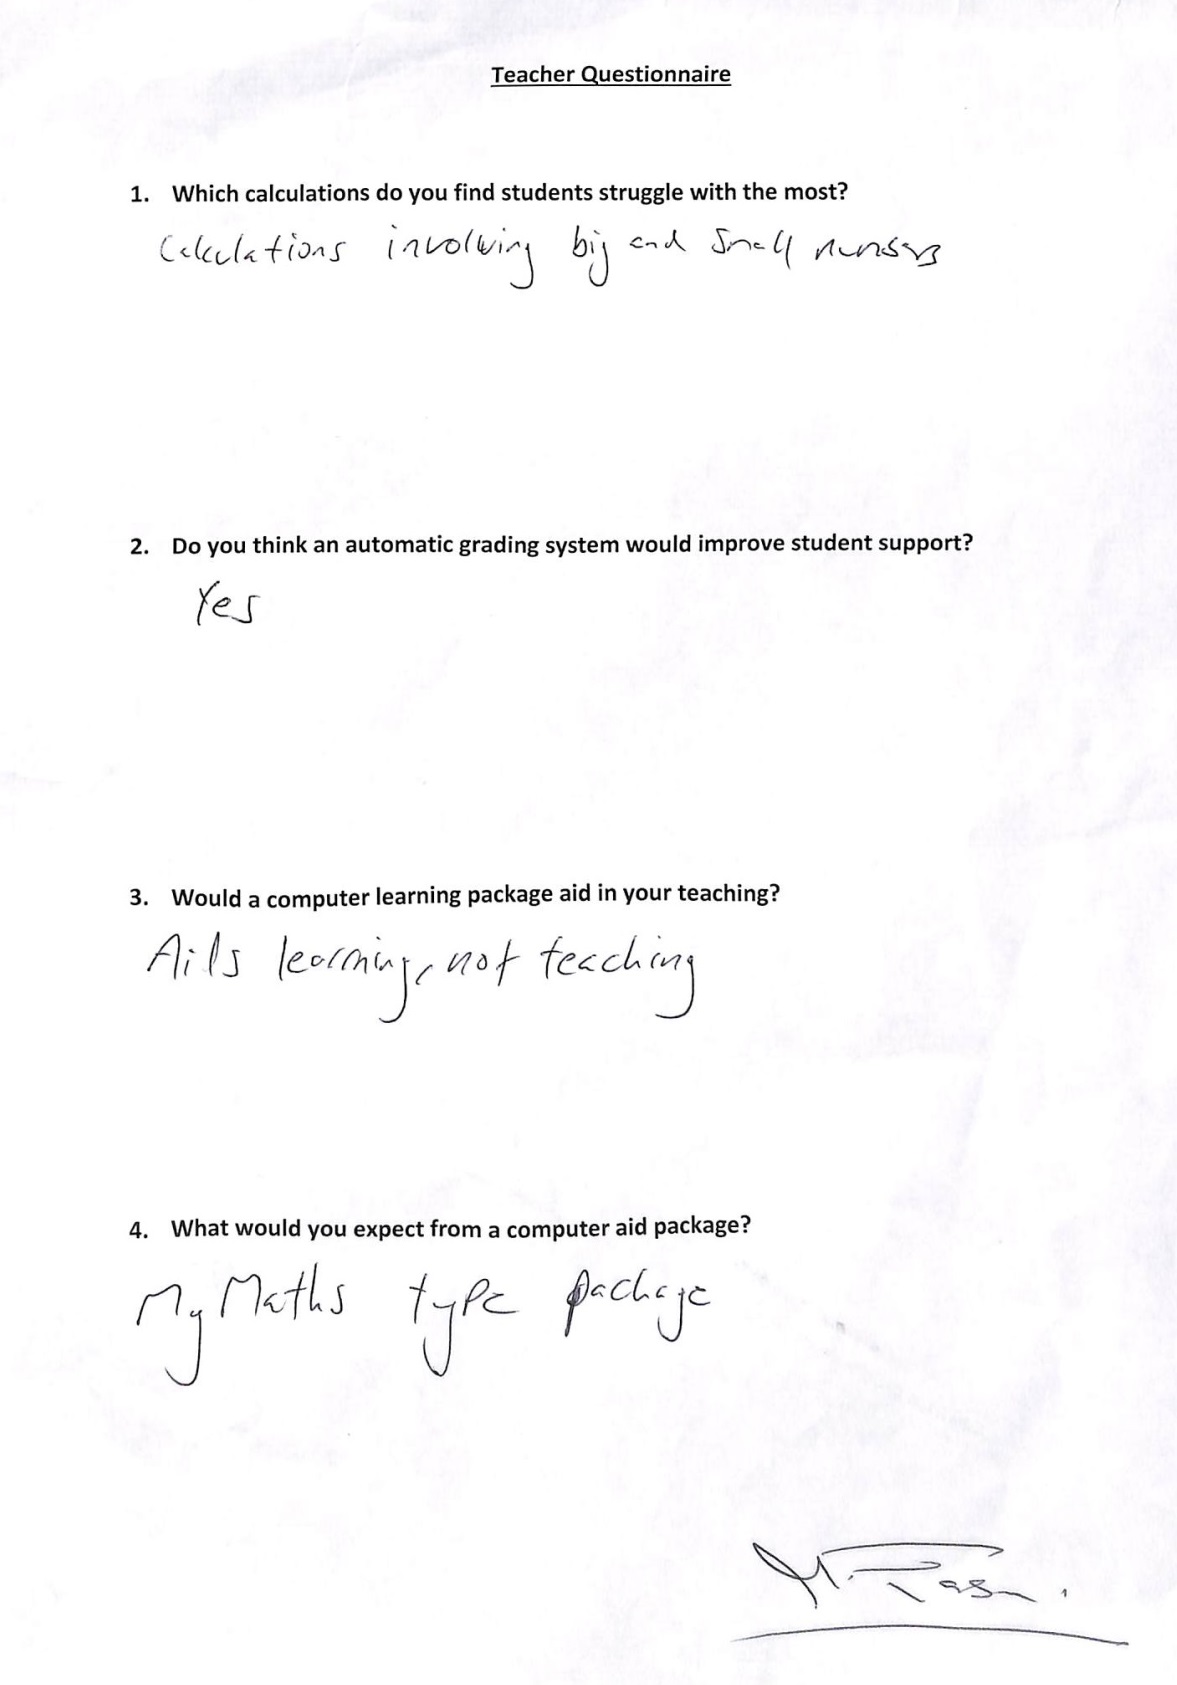 Teacher Questionnaire
1. Which calculations do you find students struggle with the most?
Calculations involving big and small numbers
2. Do you think an automatic grading system would improve student support?
Yes
3. Would a computer learning package aid in your teaching?
Aids learning, not teaching
4. What would you expect from a computer aid package?
MyMaths type package